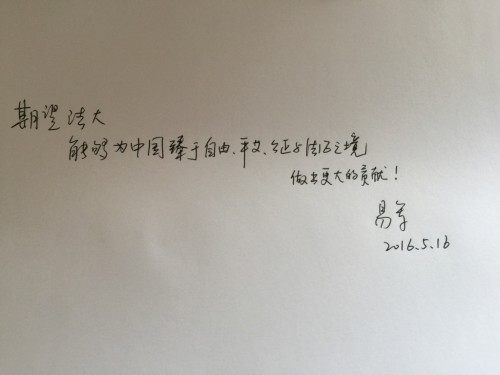 期望法大
能够为中国臻于自由、平安、公正与法治之境
做出更大的贡献！
易军
2016.5.16